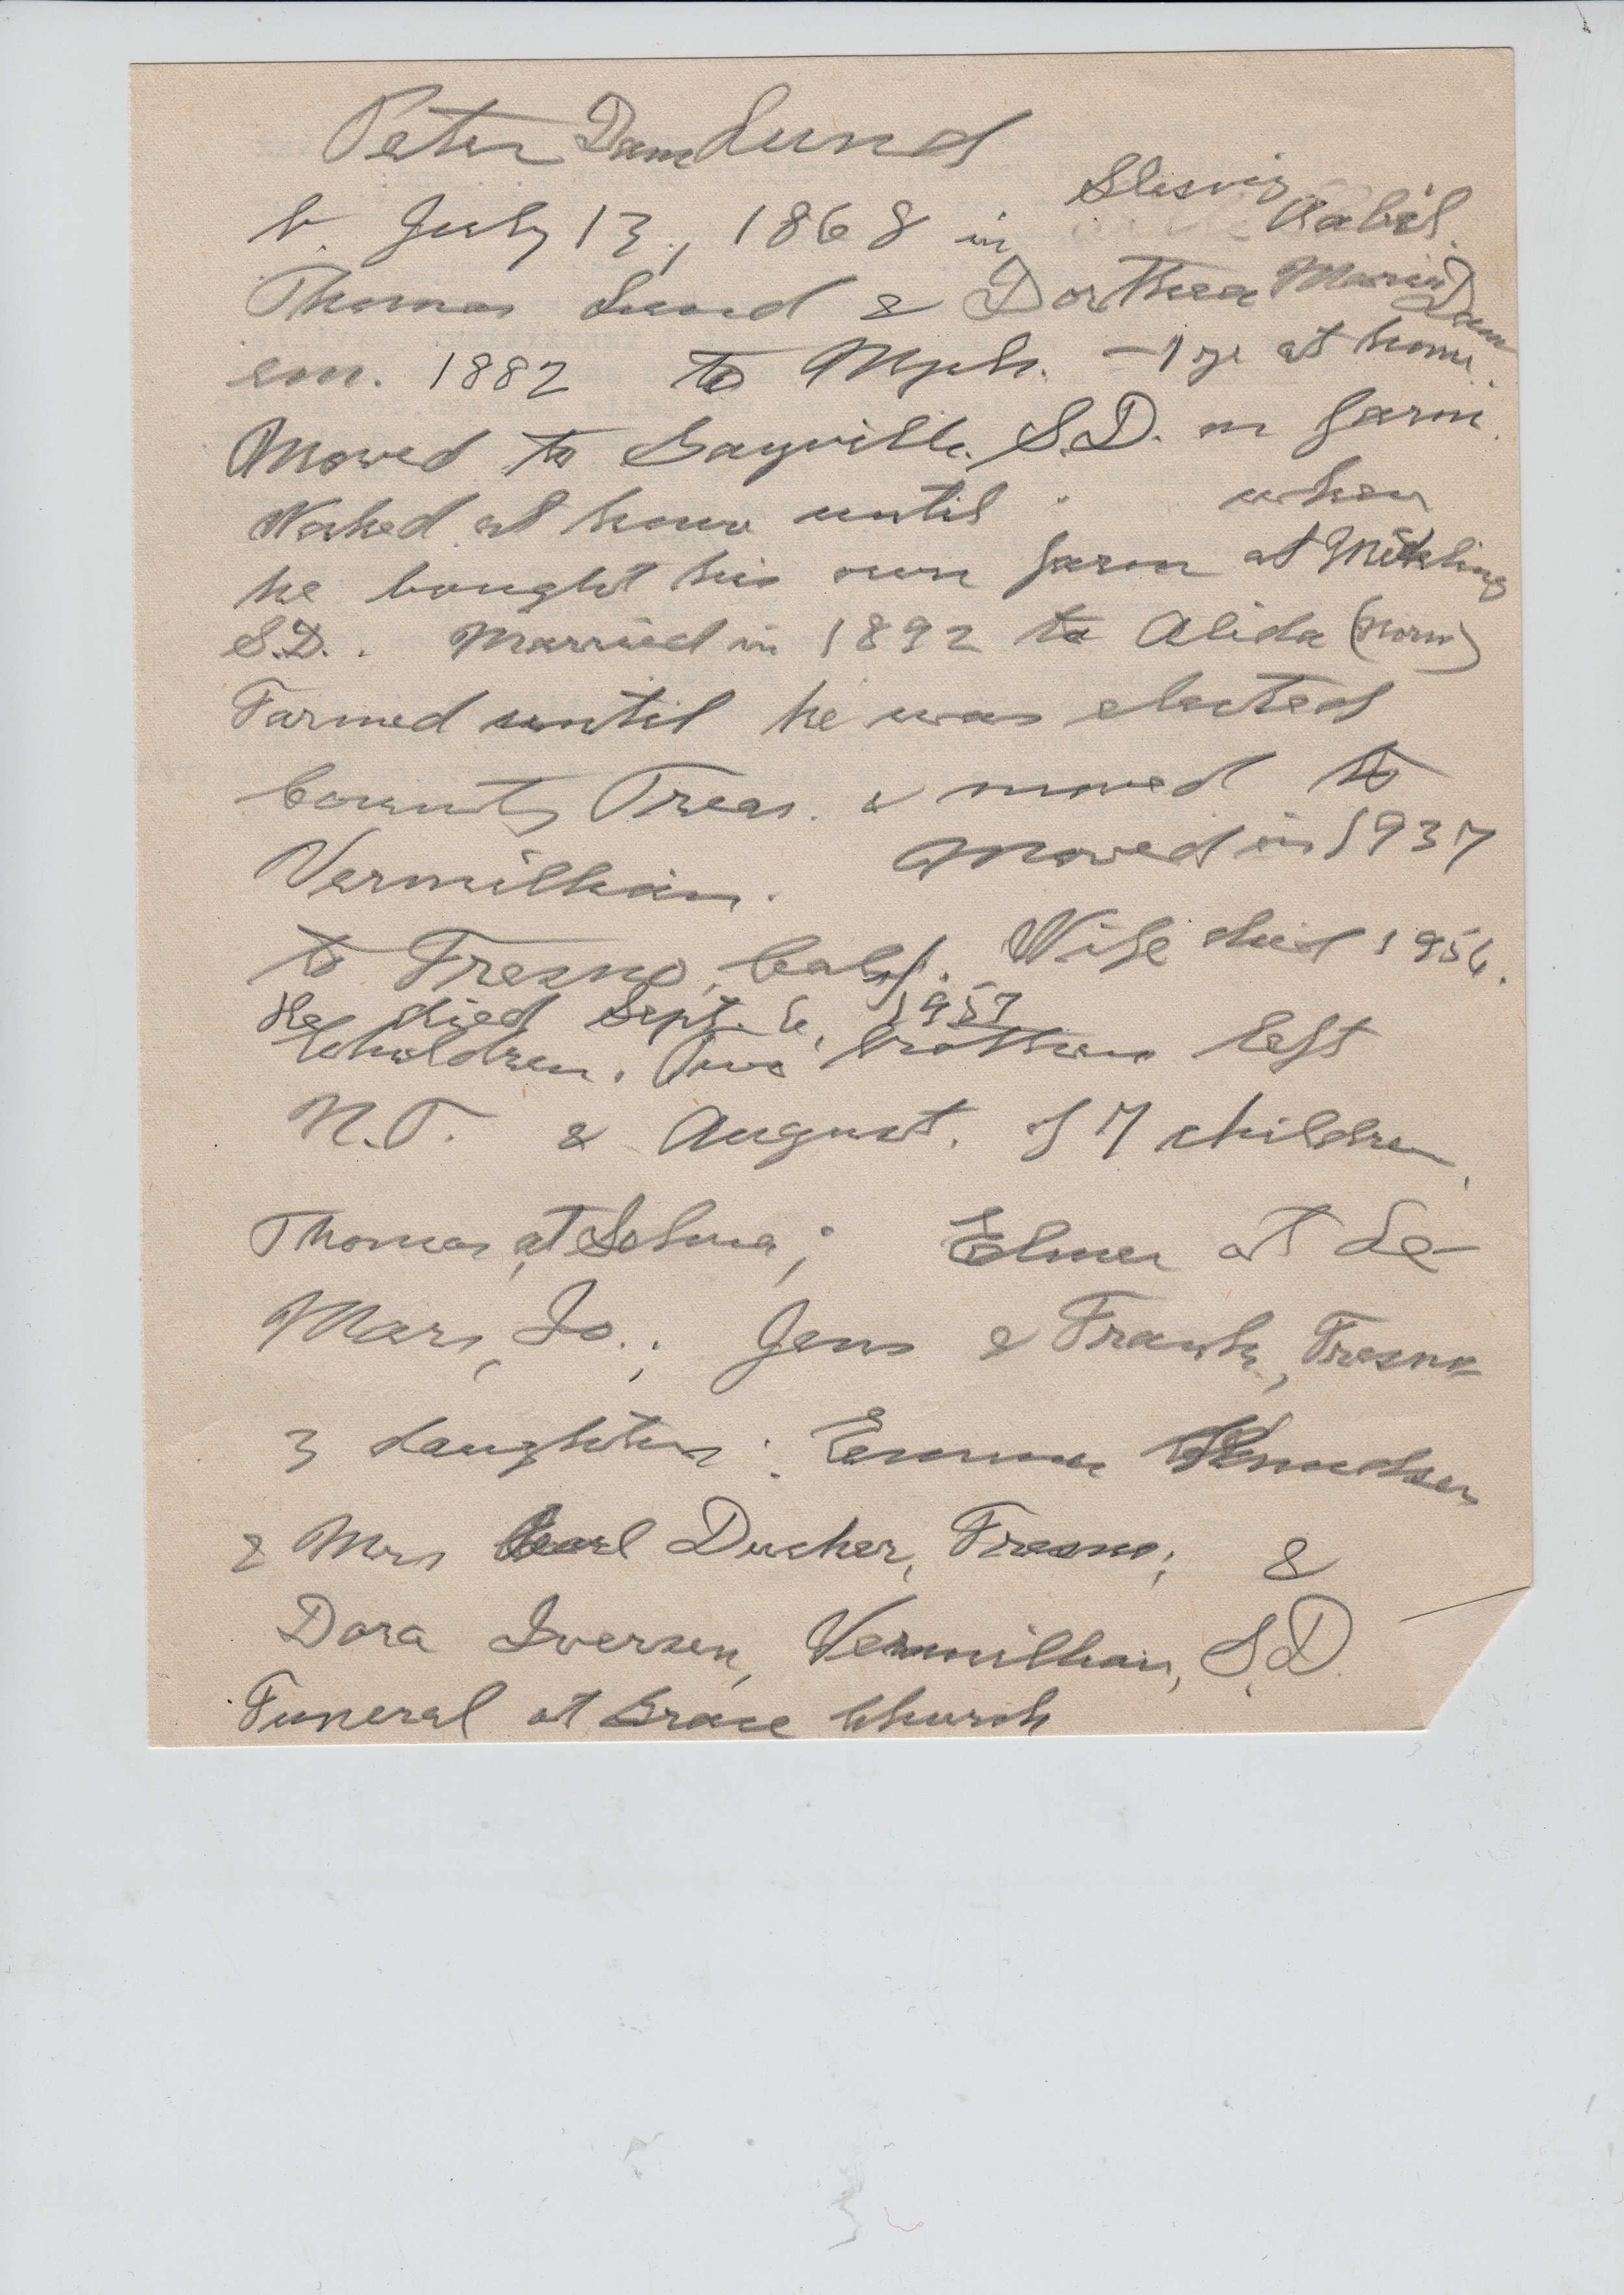 Peter Dam Lund
b. July 13, 1868 in Slesvig Aabøl.
Thomas Lund & Dorthea Marie Dam
em. 1882 to Mpls. – 1 yr at home.
Moved to Gayville, S.D. on farm.
Worked at home until when
he bought his own farm at Meckling
S.D. . Married in 1892 to Alida (Norw)
Farmed until he was elected
County Treas. & moved to
Vermillion. Moved in 1937
to Fresno, Calif. Wife died 1956.
He died Sept. 6, 1957
children. Two brothers left
N.T. & August. 7 children,
Thomas at Selma; Elmer at Le-
Mars, Io.; Jens & Frank, Fresno
3 daughters: Emma Knudsen
& Mrs Carl Ducher, Fresno; &
Dora Iversen, Vermillion, S.D.
Funeral at Grace Church